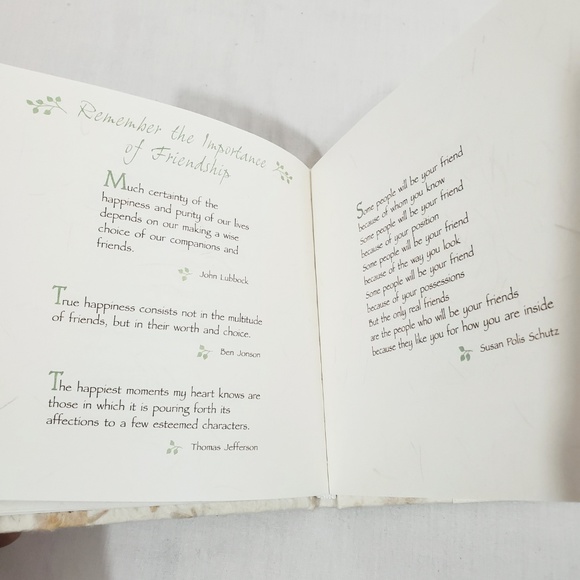 Remember the Importance
of Friendship
Much certainty of the
happiness and purity of our lives
depends on our making a wise
choice of our companions and
friends.
John Lubbock
True happiness consists not in the multitude
of friends, but in their worth and choice.
Ben Jonson
The happiest moments my heart knows are
those in which it is pouring forth its
affections to a few esteemed characters.
Thomas Jefferson
Some people will be your friend
because of whom you know
Some people will be your friend
because of your position
Some people will be your friend
because of the way you look
Some people will be your friend
because of your possessions
But the only real friends
are the people who will be your friends
because they like you for how you are inside
Susan Polis Schutz